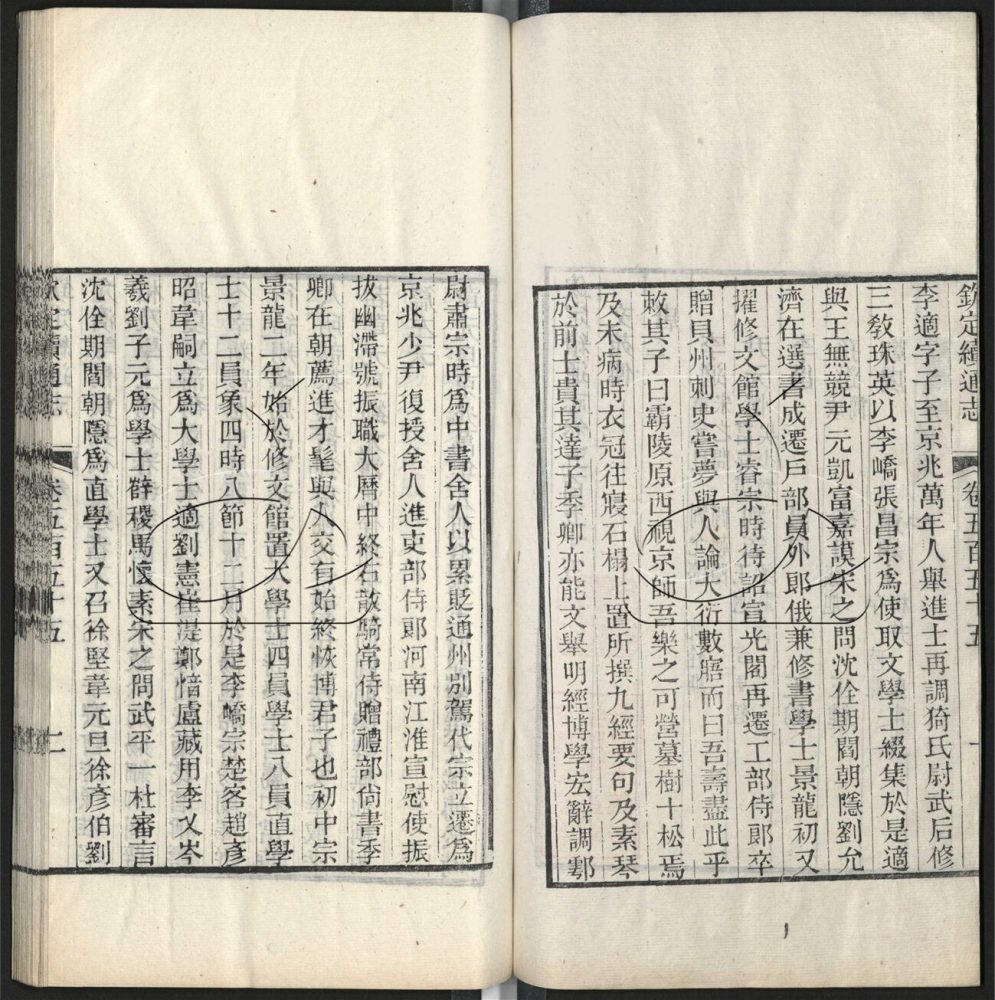 欽定續通志 卷五百五十五 一
李適字子至京兆萬年人舉進士再調猗氏尉武后修
三教珠英以李嶠張昌宗為使取文學士綴集於是適
與王無競尹元凱富嘉謨宋之問沈佺期閻朝隱劉允
濟在選書成遷戶部員外郎俄兼修書學士景龍初又
擢修文館學士睿宗時待詔宣光閣再遷工部侍郎卒
贈貝州刺史嘗夢與人論大衍數寤而曰吾壽盡此乎
敕其子曰霸陵原西視京師吾樂之可營墓樹十松焉
及未病時衣冠往寢石榻上置所撰九經要句及素琴
於前士貴其達子季卿亦能文舉明經博學宏辭調鄠
尉肅宗時為中書舍人以累貶通州別駕代宗立遷為
京兆少尹復授舍人進吏部侍郎河南江淮宣慰使振
拔幽滯號振職大曆中終右散騎常侍贈禮部尚書季
卿在朝薦進才髦與人交有始終恢博君子也初中宗
景龍二年始於修文館置大學士四員學士八員直學
士十二員象四時八節十二月於是李嶠宗楚客趙彥
昭韋嗣立為大學士適劉憲崔湜鄭愔盧藏用李乂岑
羲劉子元為學士薛稷馬懷素宋之問武平一杜審言
沈佺期閻朝隱為直學士又召徐堅韋元旦徐彥伯劉
欽定續通志 卷五百五十五 二